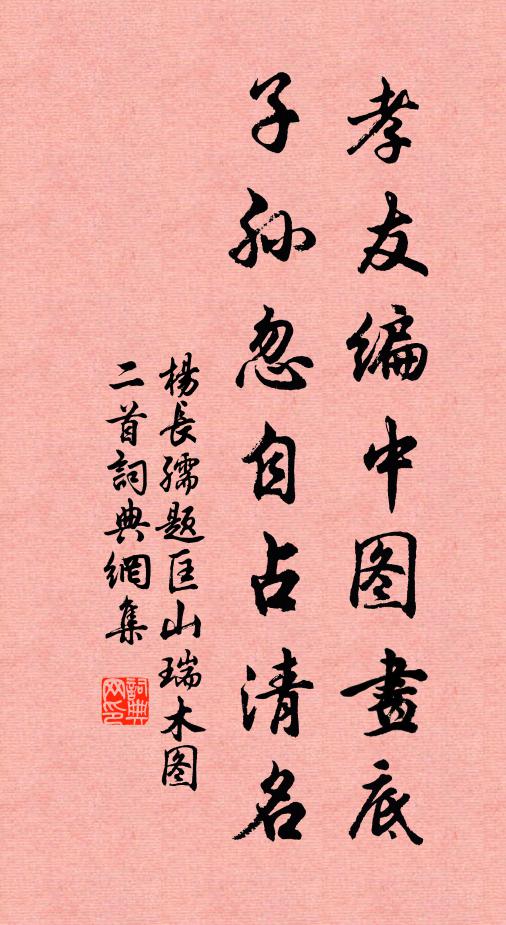 孝友编中图畫底
子孙忽自占清名
楊長孺题匡山瑞木图
二首詞典網集
詞典网印